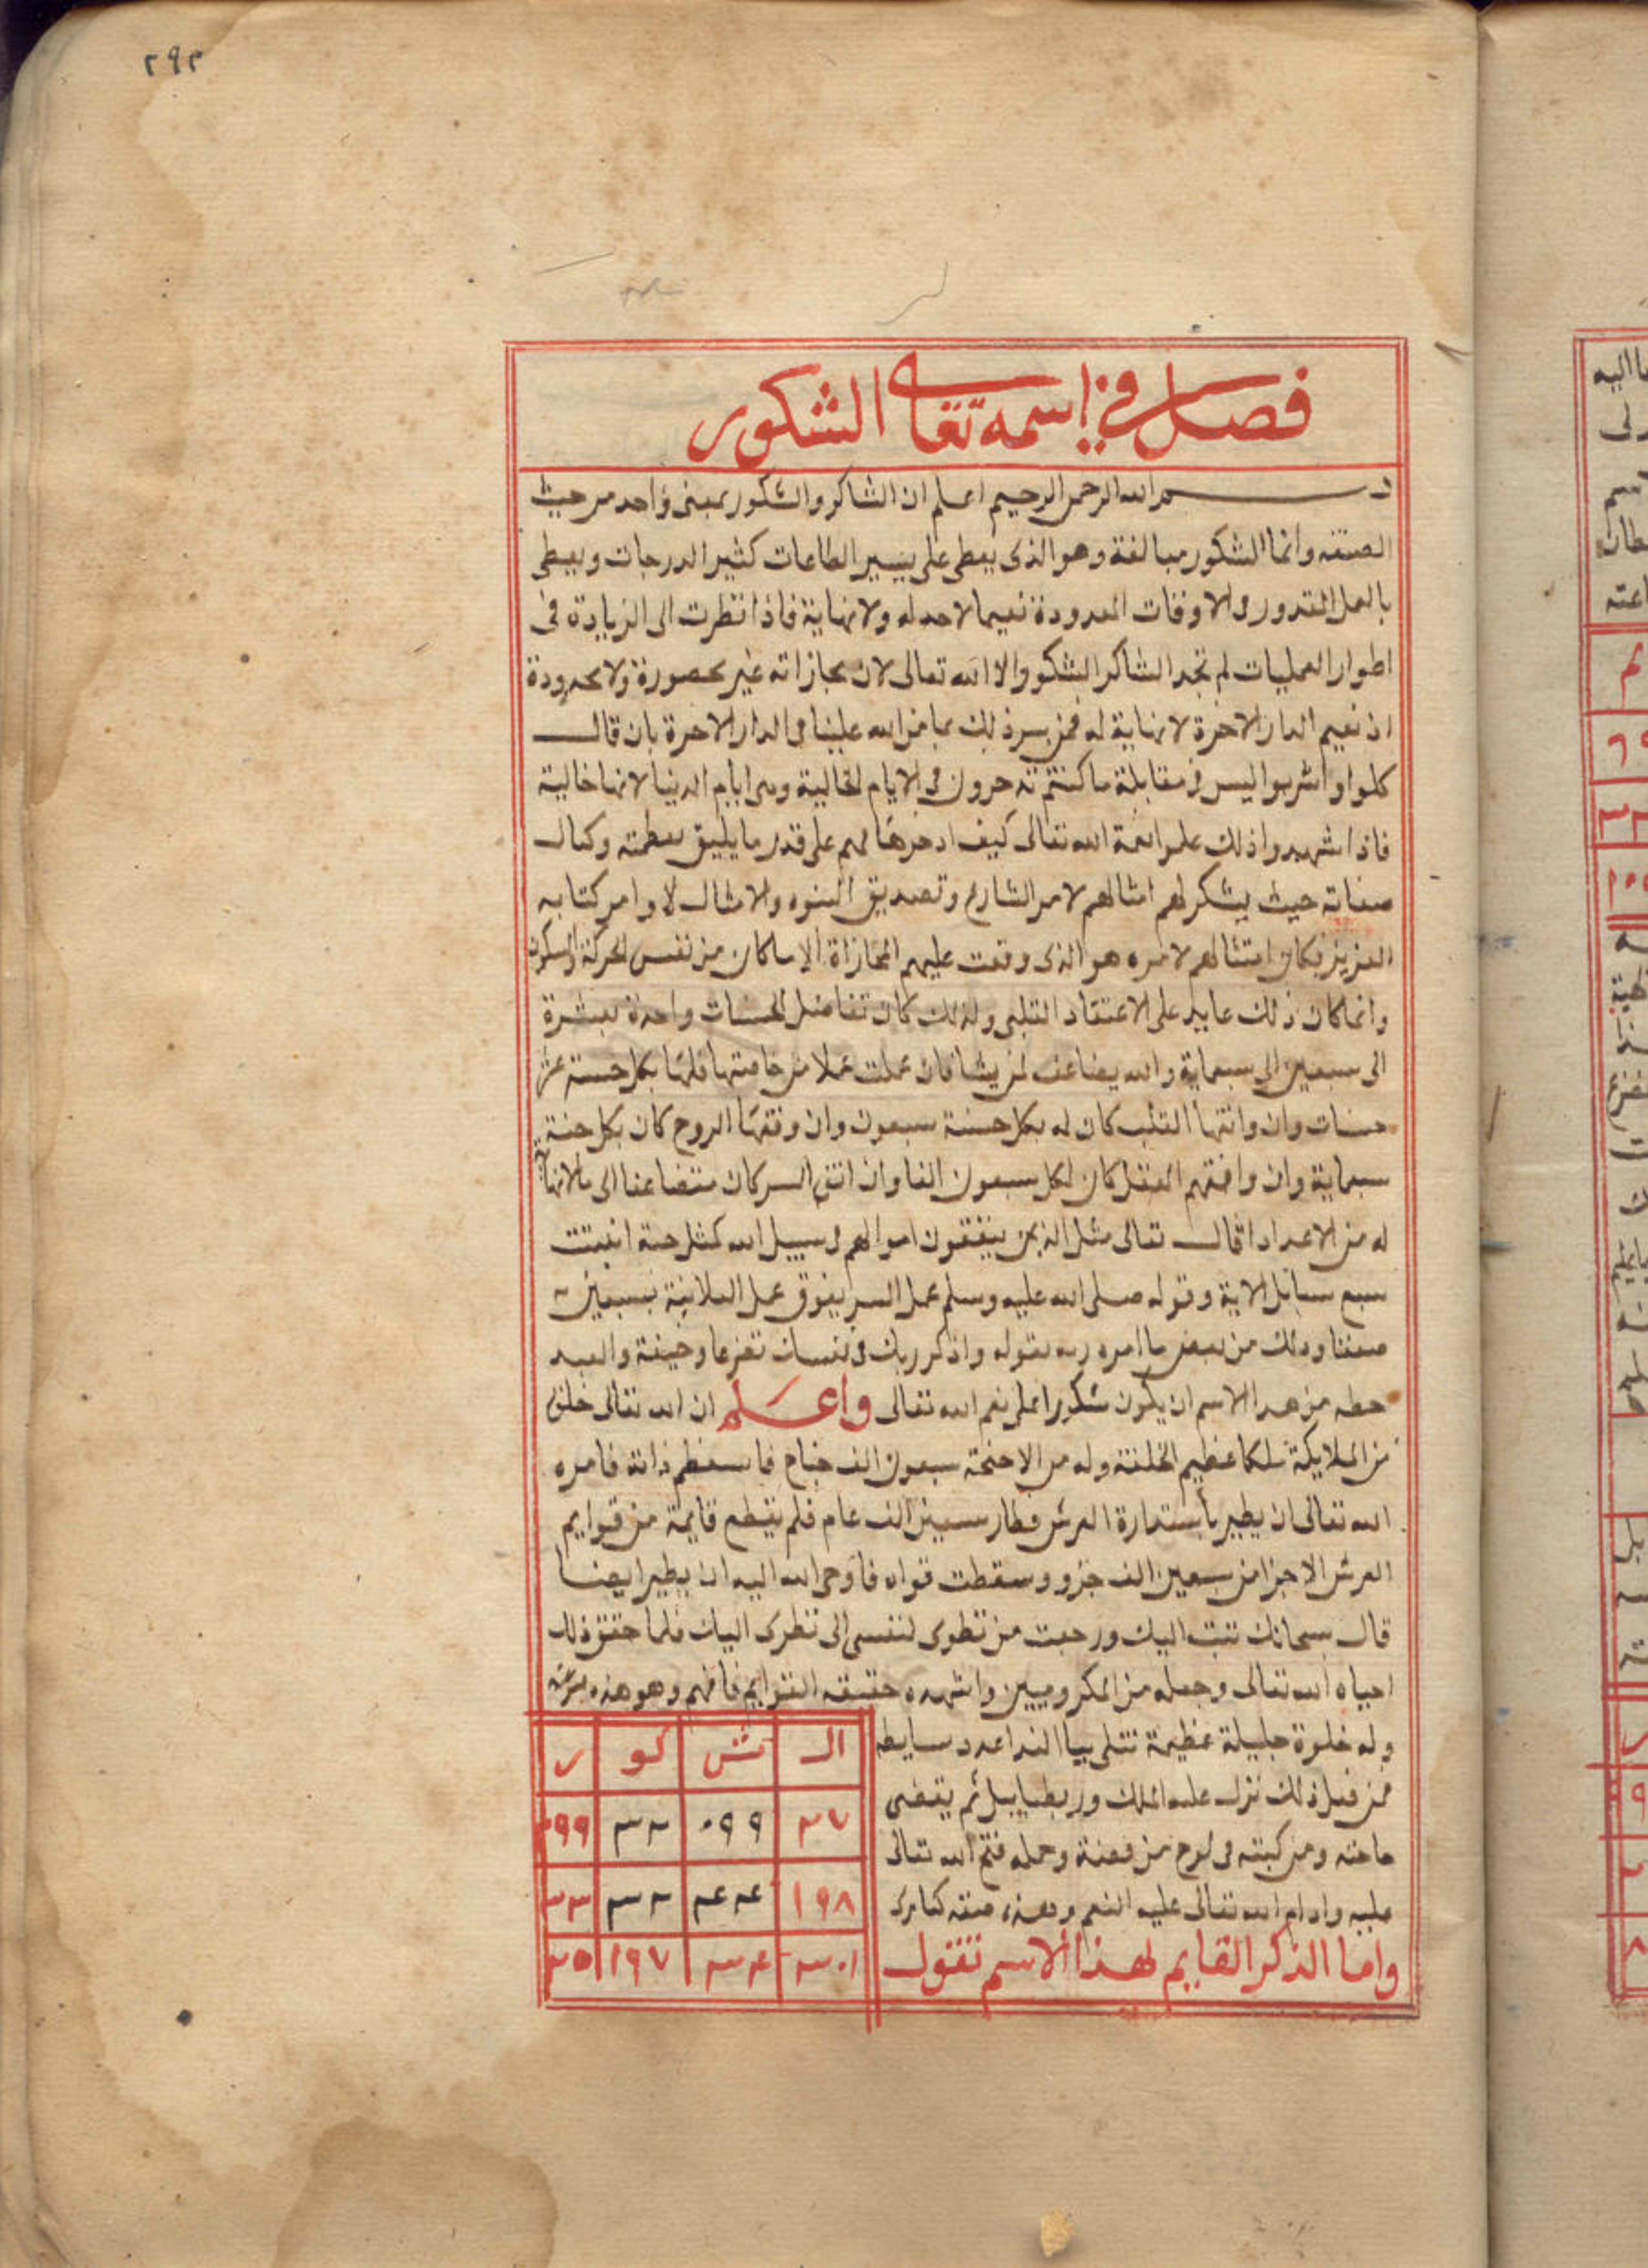 ٢٩٢
فصل في اسمه تعالى الشكور
بسم الله الرحمن الرحيم اعلم ان الشاكر والشكور بمعنى واحد من حيث
الصفة وانما الشكور مبالغة وهو الذى يعطى على يسير الطاعات كثير الدرجات ويعطى
بالعمل المقدور فى الاوقات المعدودة نعيما لاحد له ولا نهاية فاذا نظرت الى الزيادة فى
اطوار العمليات لم تجد الشاكر الشكور الا الله تعالى لان مجازاته غير محصورة ولا محدودة
اذ نعيم الدار الاخرة لا نهاية له فمن سر ذلك بما من الله علينا فى الدار الاخرة بان قال
كلوا واشربوا اليس فى مقابلة ما كنتم تدخرون فى الايام الخالية وهى ايام الدنيا لانها خالية
فاذا شهدوا ذلك علموا نعمة الله تعالى كيف ادخرها لهم على قدر ما يليق بعظمته وكمال
صفاته حيث يشكر لهم امثالهم لامر الشارع وتصديق النبوه والامثال لاوامر كتابه
العزيز فكان امتثالهم لامره هو الذى وقعت عليهم المجازاة لا ما كان من نفس الحركة والسكون
وانما كان ذلك عايد على الاعتقاد القلبى ولذلك كان تفاضل الحسنات واحدة بعشرة
الى سبعين الى سبعماية والله يضاعف لمن يشا فان عملت عملا من خاصتها فلها بكل حسنة عشر
حسنات وان وافقها القلب كان له بكل حسنة سبعون وان وقفها الروح كان بكل حسنة
سبعماية وان وافقهم العقل كان لكل سبعون الفا وان اتفق السر كان متضاعفا الى ما لا نهاية
له من الاعداد قال تعالى مثل الذين ينفقون اموالهم فى سبيل الله كمثل حبة انبتت
سبع سنابل الاية وقوله صلى الله عليه وسلم عمل السر يفوق عمل العلانية بسبعين
ضعفا وذلك من بعض ما امره ربه بقوله واذكر ربك فى نفسك تضرعا وخيفة والعبد
حظه من هذا الاسم ان يكون شكورا على نعم الله تعالى واعلم ان الله تعالى خلق
من الملايكة ملكا عظيم الخلقة وله من الاجنحة سبعون الف جناح فاستعظم ذاته فامره
الله تعالى ان يطير باستدارة العرش فطار سبعين الف عام فلم يقطع قايمة من قوايم
العرش الا جزا من سبعين الف جزو وسقطت قواه فاوحى الله اليه ان يطير ايضا
قال سبحانك تبت اليك ورجعت من نظرى لنفسى الى نظرى اليك فلما حقق ذلك
احياه الله تعالى وجعله من المكروبيين واشهده حقيقة القوايم فافهم وهو هذه مربعه
وله خلوة جليلة عظيمة تتلى بيا الندا عدد بسايطه
فمن فعل ذلك نزل عليه الملك وربطيابيل ثم يقضى
حاجته ومن كتبه فى لوح من فضة وحمله فتح الله تعالى
عليه وادام الله تعالى عليه النعم وهذه صفته كما ترى
واما الذكر القايم لهذا الاسم تقول
ال ش كو ر
٢٧ ٩٩ ٠ ٢٣ ٢٩٩
١٩٨ ٢٤ ٢٣ ٣٣
٣٠١ ٢٤ ١٩٧ ٢٥